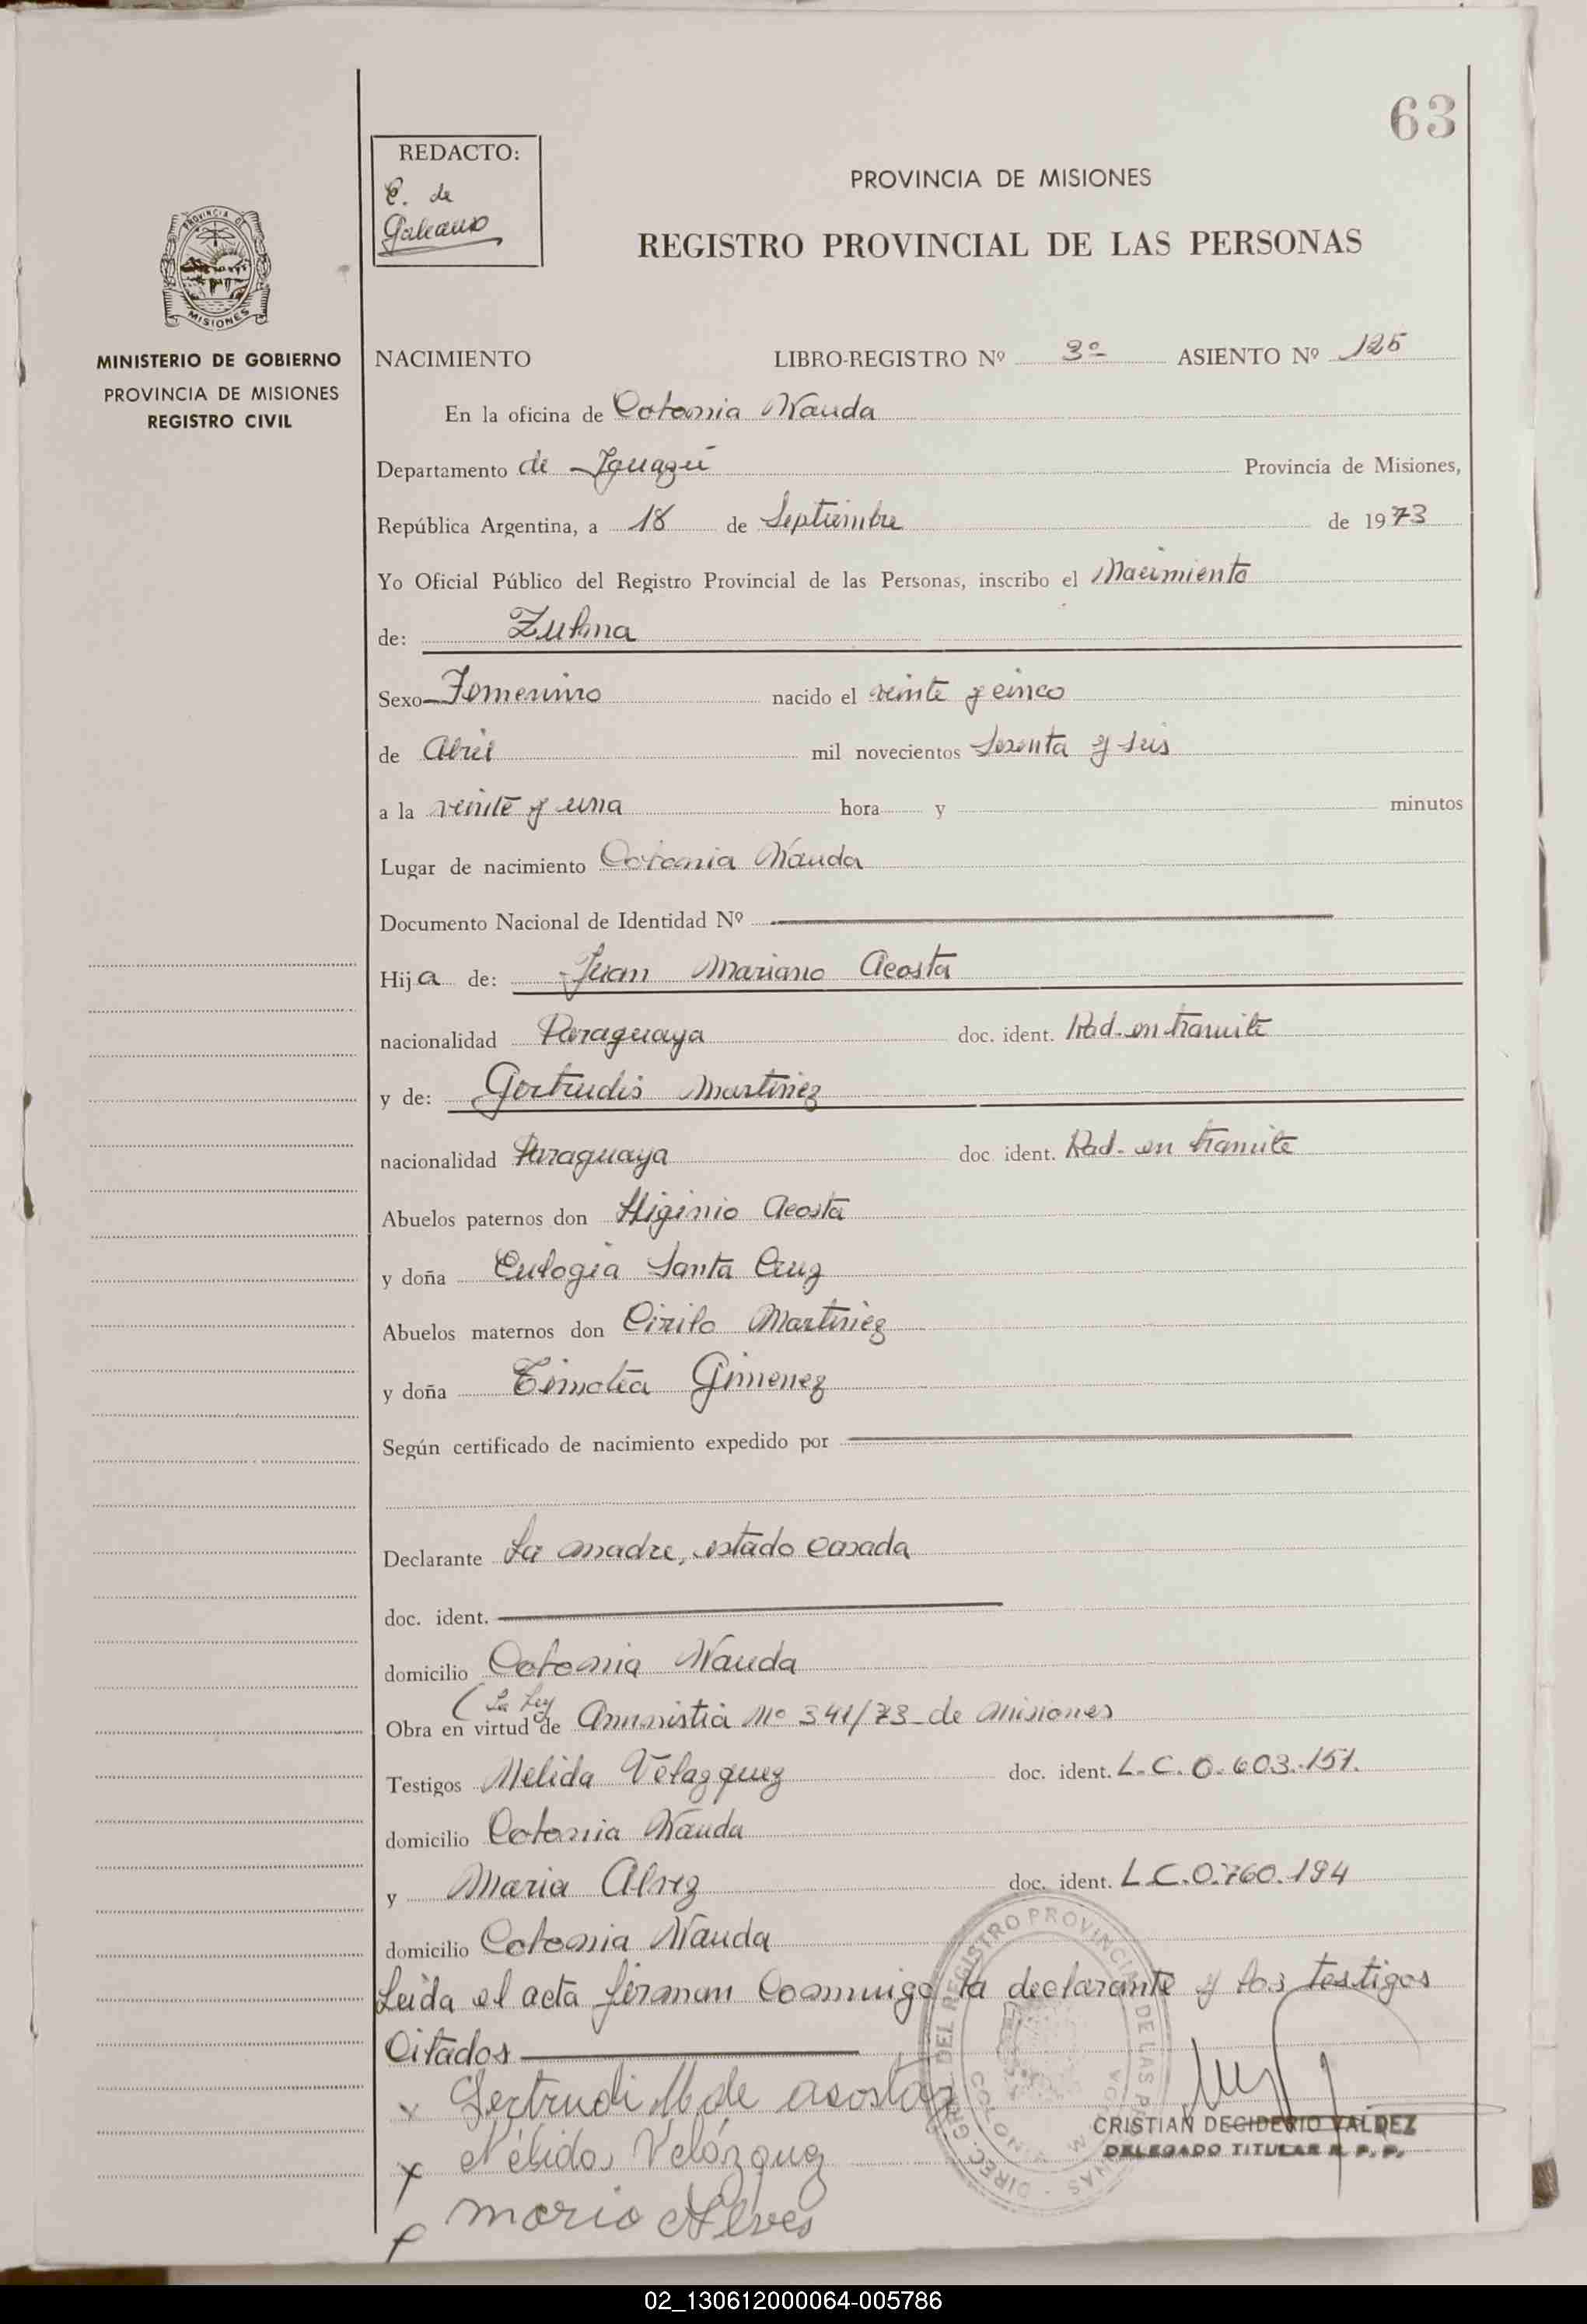 63
REDACTO:
C. de
Galeano
PROVINCIA DE MISIONES
REGISTRO PROVINCIAL DE LAS PERSONAS
PROVINCIA DE
MISIONES
MINISTERIO DE GOBIERNO
PROVINCIA DE MISIONES
REGISTRO CIVIL
NACIMIENTO LIBRO-REGISTRO Nº 3º ASIENTO Nº 125
En la oficina de Colonia Wanda
Departamento de Iguazú Provincia de Misiones,
República Argentina, a 18 de Septiembre de 1973
Yo Oficial Público del Registro Provincial de las Personas, inscribo el Nacimiento
de: Zulma
Sexo Femenino nacido el veinte y cinco
de Abril mil novecientos Sesenta y seis
a la veinte y una hora y minutos
Lugar de nacimiento Colonia Wanda
Documento Nacional de Identidad Nº
Hija de: Juan Mariano Acosta
nacionalidad Paraguaya doc. ident. Rad. en tramite
y de: Gertrudis Martinez
nacionalidad Paraguaya doc. ident. Rad. en tramite
Abuelos paternos don Higinio Acosta
y doña Eulogia Santa Cruz
Abuelos maternos don Cirilo Martinez
y doña Timotea Gimenez
Según certificado de nacimiento expedido por
Declarante La madre, estado casada
doc. ident.
domicilio Colonia Wanda
(La Ley
Obra en virtud de Amnistia Nº 341/73 de Misiones
Testigos Nelida Velazquez doc. ident. L.C.0.603.151.
domicilio Colonia Wanda
y Maria Alvez doc. ident. L.C.0.760.194
domicilio Colonia Wanda
Leida el acta firman Conmigo la declarante y los testigos
Citados
x Gertrudi M de acosta
x Nélida Velázquez
x maria Alves
DIREC. GRAL. DEL REGISTRO PROVINCIAL DE LAS PERSONAS
CRISTIAN DECIDERIO VALDEZ
DELEGADO TITULAR R. P. P.
02_130612000064-005786